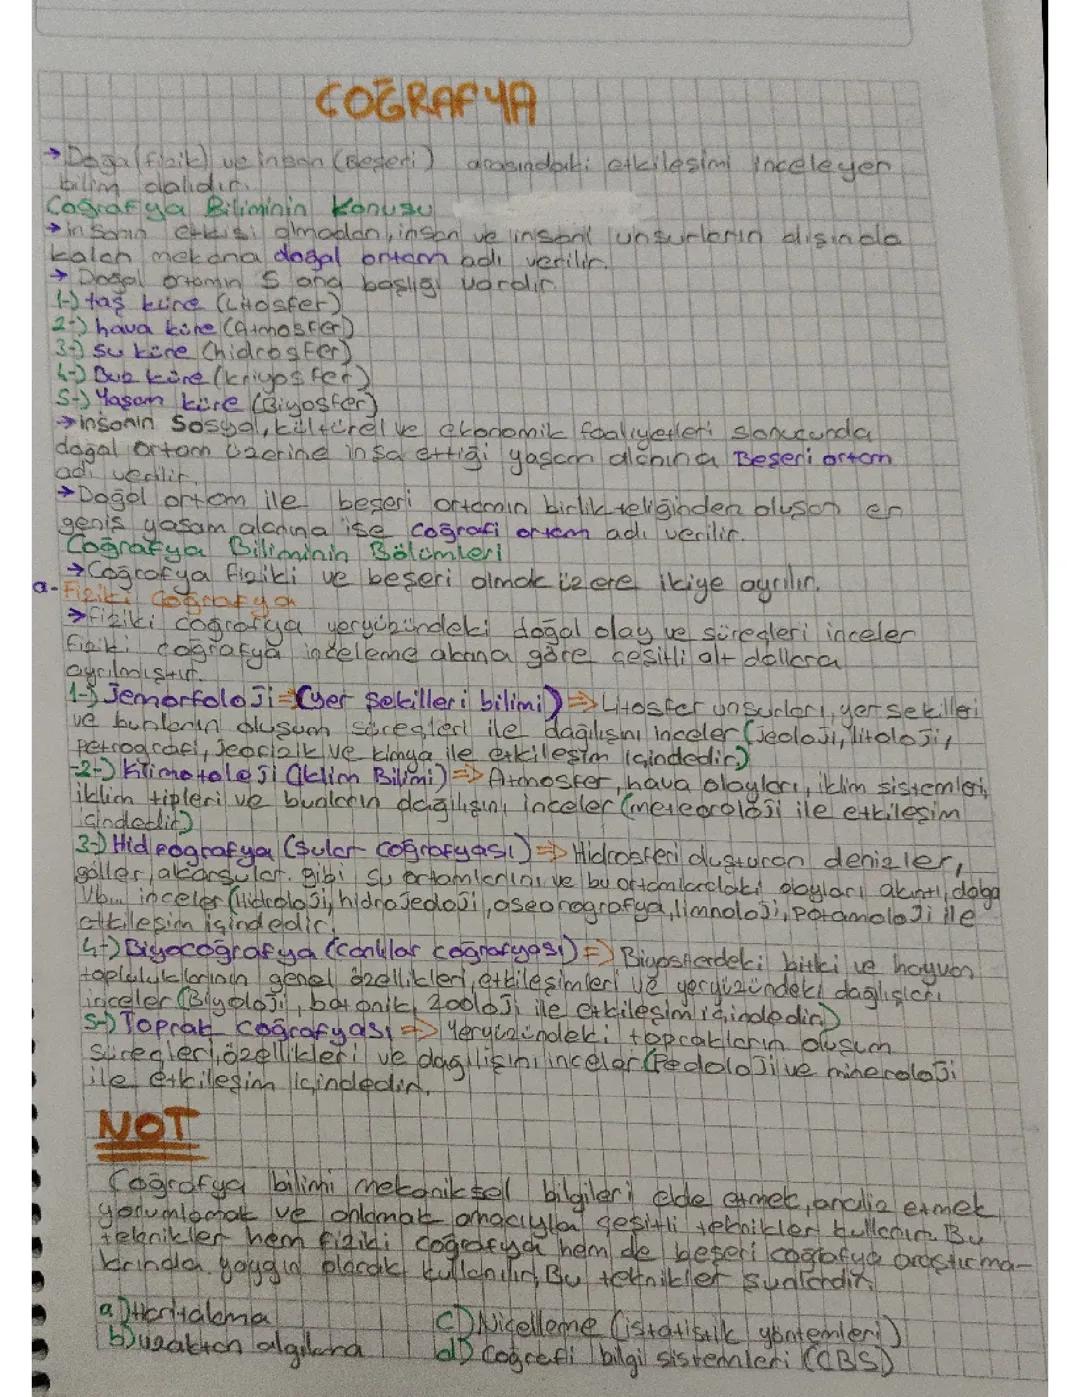 COĞRAFYA
→ Doğa (fizik) ve insan (Beşeri) arasındaki etkileşimi inceleyen
bilim dalıdır.
Coğrafya Biliminin Konusu
→ insanın etkisi olmadan, insan ve insanî unsurların dışında
kalan mekana doğal ortam adı verilir.
→ Doğal ortamın 5 ana başlığı vardır.
1-) taş küre (Litosfer)
2-) hava küre (Atmosfer)
3-) su küre (hidrosfer)
4-) Buz küre (kriyosfer)
5-) Yaşam küre (Biyosfer)
→ insanın Sosyal, kültürel ve ekonomik faaliyetleri sonucunda
doğal ortam üzerine inşa ettiği yaşam alanına Beşeri ortam
adı verilir.
→ Doğal ortam ile beşeri ortamın birlikteliğinden oluşan en
geniş yaşam alanına ise coğrafi ortam adı verilir.
Coğrafya Biliminin Bölümleri
→ Coğrafya fiziki ve beşeri olmak üzere ikiye ayrılır.
a- Fiziki Coğrafya
→ fiziki coğrafya yeryüzündeki doğal olay ve süreçleri inceler
fiziki coğrafya inceleme alanına göre çeşitli alt dallara
ayrılmıştır.
1-) Jemorfoloji => (yer şekilleri bilimi) => Litosfer unsurları, yer şekilleri
ve bunların oluşum süreçleri ile dağılışını inceler (jeoloji, litoloji,
petrografi, jeofizik ve kimya ile etkileşim içindedir.)
2-) Klimatoloji (İklim Bilimi) => Atmosfer, hava olayları, iklim sistemleri,
iklim tipleri ve bunların dağılışını inceler (meteoroloji ile etkileşim
içindedir)
3-) Hidrografya (Sular Coğrafyası) => Hidrosferi oluşturan denizler,
göller, akarsular gibi su ortamlarını ve bu ortamlardaki olayları akıntı, dalga
vb... inceler (Hidroloji, hidrojeoloji, oseonografya, limnoloji, Potamoloji ile
etkileşim içindedir.
4-) Biyocoğrafya (Canlılar coğrafyası) => Biyosferdeki bitki ve hayvan
topluluklarının genel özellikleri, etkileşimleri ve yeryüzündeki dağılışları
inceler (Biyoloji, botanik, zooloji ile etkileşim içindedir)
5-) Toprak Coğrafyası => Yeryüzündeki toprakların oluşum
süreçleri, özellikleri ve dağılışını inceler (Pedoloji ve mineroloji
ile etkileşim içindedir.
NOT
Coğrafya bilimi mekaniksel bilgileri elde etmek, analiz etmek
yorumlamak ve anlamak amacıyla çeşitli teknikler kullanır. Bu
teknikler hem fiziki coğrafya hem de beşeri coğrafya araştırma-
larında yaygın olarak kullanılır. Bu teknikler şunlardır;
a) Haritalama
c) Nicelleme (istatistik yöntemleri)
b) uzaktan algılama
d) Coğrafi bilgi sistemleri (CBS)